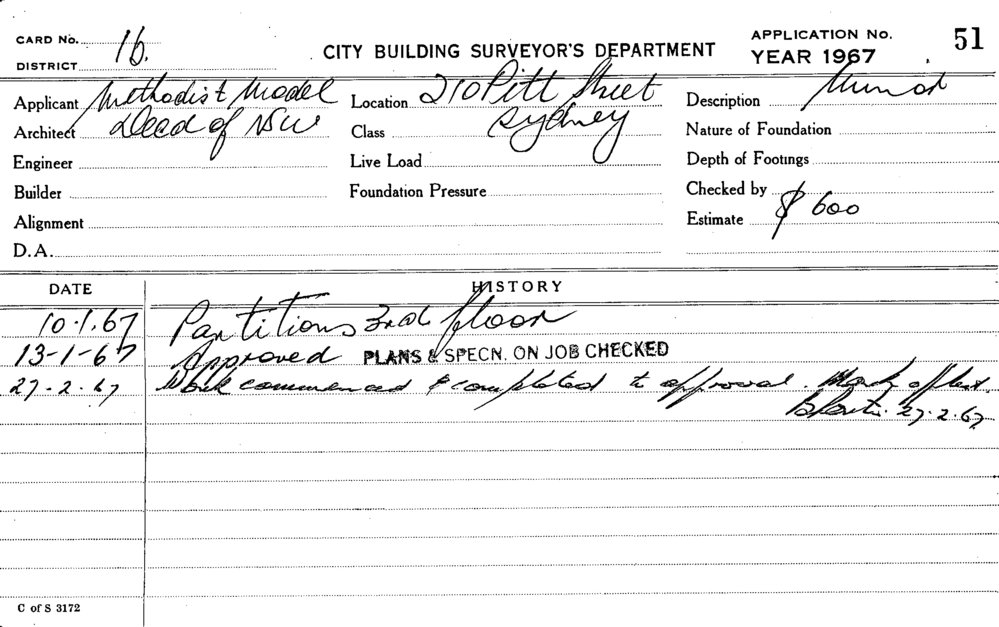 CARD No. 16.
DISTRICT
CITY BUILDING SURVEYOR'S DEPARTMENT
APPLICATION No. 51
YEAR 1967
Applicant Methodist Model
Location 210 Pitt Street
Sydney
Description Minor
Architect Deed of NSW
Class
Nature of Foundation
Engineer
Live Load
Depth of Footings
Builder
Foundation Pressure
Checked by
Alignment
Estimate $ 600
D.A.
DATE HISTORY
10.1.67 Partitions 3rd floor
13-1-67 Approved PLANS & SPECN. ON JOB CHECKED
27.2.67 Work commenced & completed to approval.
27.2.67
C of S 3172